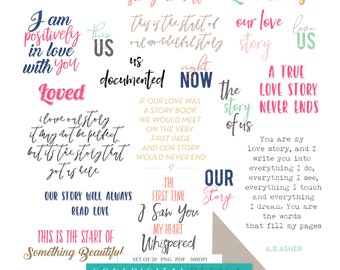 I am
positively
in love
with you
there
US
this is the start of
our wonderful story
our love
story
US
us
documented
right
NOW
the
story
of us
A TRUE
LOVE STORY
NEVER ENDS
Loved
i love our story
it may not be perfect
but its the story that
got us here
IF OUR LOVE WAS
A STORY BOOK
WE WOULD MEET
ON THE VERY
FIRST PAGE
AND OUR STORY
WOULD NEVER END
You are my
love story, and I
write you into
everything I do,
everything I see,
everything I touch
and everything
I dream. You are
the words
that fill my pages
A.R.ASHER
OUR STORY WILL ALWAYS
READ LOVE
THE
FIRST TIME
I Saw You
MY HEART
Whispered
OUR
Story
THIS IS THE START OF
Something Beautiful!
SET OF 20 PNG PDF 300DPI